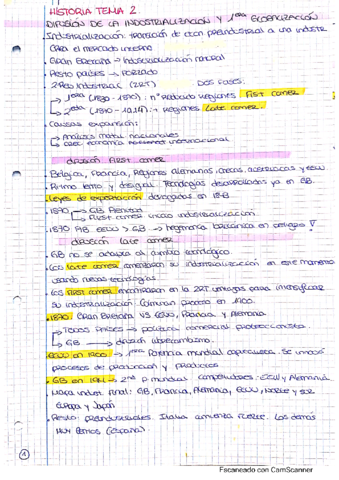 HISTORIA TEMA 2
DIFUSIÓN DE LA INDUSTRIALIZACIÓN Y 1era GLOBALIZACIÓN
Industrialización: transición de econ preindustrial a una industr
Crea el mercado interno
Gran Bretaña → Industrialización natural
Resto países → FORZADO
2ª Rev Industrial (2RT) DOS FASES:
→ 1era (1830-1870): nº reducido regiones First comer
→ 2era (1870-1914): + regiones Late comer.
Causas expansión:
→ Análisis nacionales
→ economía internacional
difusión First comer
Bélgica, Francia, Regiones alemanas, checas, austriacas y EEUU
Ritmo lento y desigual. Tecnologías desarrolladas ya en GB.
Leyes de exportación derogadas en 1843
1890 → GB
→ First comer inicio industrialización.
1890 PIB EEUU > GB → hegemonía británica en peligro!
difusión late comer
GB no se adapta al cambio tecnológico.
Los late comer comenzaron su industrialización en este momento
usando nuevas tecnologías
Los First comer encontraron en la 2RT ventajas para intensificar
su industrialización. Culminan proceso en 1900.
1890: Gran Bretaña VS EEUU, Francia y Alemania
→ Todos países → política comercial proteccionista
→ GB → librecambismo.
EEUU en 1900 → 1era Potencia mundial capitalista. Se innovó
procesos de producción y productos
GB en 1914 → 2nda P mundial competidores: EEUU y Alemania
Mapa indust final: GB, Francia, Alemania, EEUU, Norte y sur
Europa y Japón
Resto: preindustriales. Italia aumenta fuerte. Los demás
muy lentos (España)
1
Escaneado con CamScanner